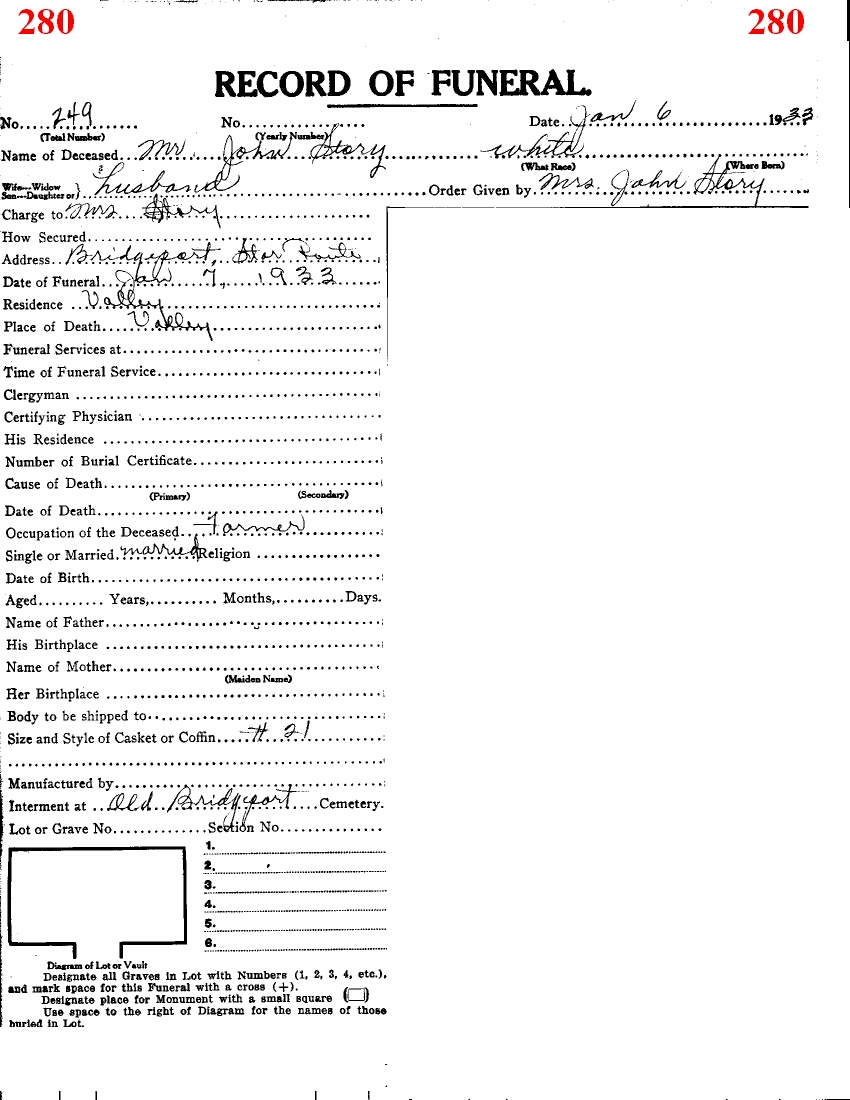 280 280
RECORD OF FUNERAL.
No.....249....... No.................. Date..Jan 6..................1933
(Total Number) (Yearly Number)
Name of Deceased...Mr.....John Story...............white.................................
(What Race) (Where Born)
Wife---Widow
Son---Daughter or) } husband..............................Order Given by..Mrs. John Story.......
Charge to Mrs....Story...........................
How Secured.................................................
Address..Bridgeport, Star Route..
Date of Funeral..Jan 7, 1933.......
Residence ...Valley.................................
Place of Death....Valley..........................
Funeral Services at.........................................
Time of Funeral Service...................................
Clergyman ................................................
Certifying Physician .....................................
His Residence ............................................
Number of Burial Certificate.............................
Cause of Death...........................................
(Primary) (Secondary)
Date of Death............................................
Occupation of the Deceased...Farmer.............
Single or Married.married Religion ..................
Date of Birth.............................................
Aged.......... Years,.......... Months,..........Days.
Name of Father...........................................
His Birthplace ...........................................
Name of Mother..........................................
(Maiden Name)
Her Birthplace ...........................................
Body to be shipped to....................................
Size and Style of Casket or Coffin.....# 21............
............................................................
Manufactured by..........................................
Interment at ..Old Bridgeport....Cemetery.
Lot or Grave No.............Section No...............
1.
2.
3.
4.
5.
6.
Diagram of Lot or Vault
Designate all Graves in Lot with Numbers (1, 2, 3, 4, etc.),
and mark space for this Funeral with a cross (+).
Designate place for Monument with a small square
Use space to the right of Diagram for the names of those
buried in Lot.